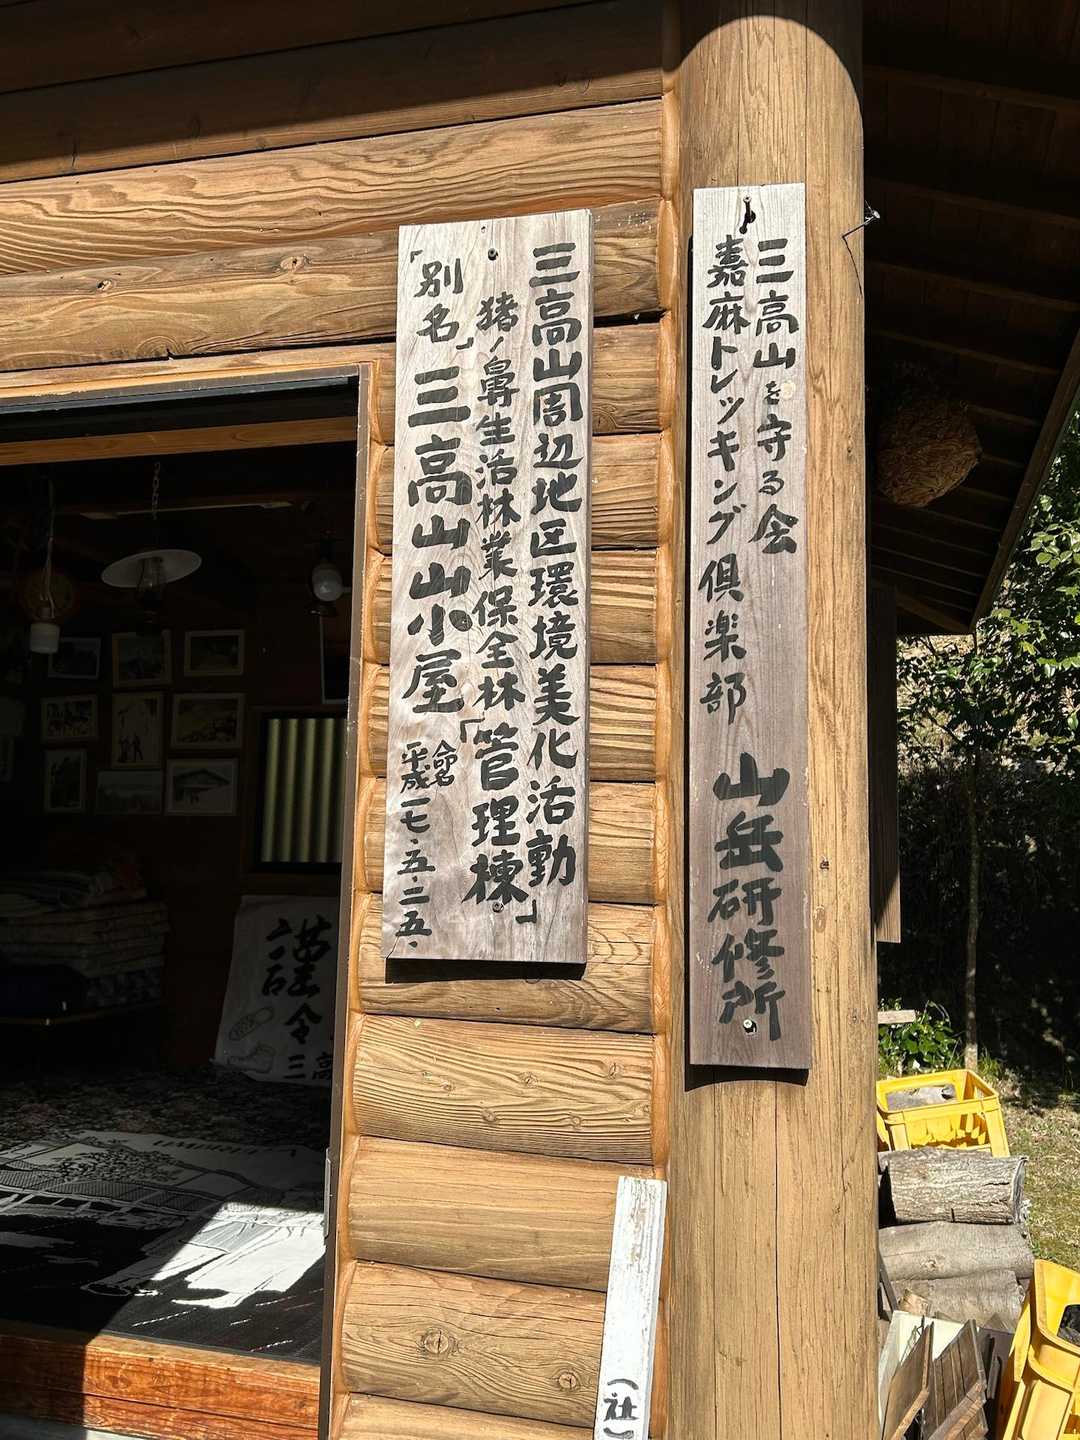 三高山を守る会
嘉麻トレッキング倶楽部 山岳研修所
三高山周辺地区環境美化活動
猪ノ鼻生活林業保全林「管理棟」
「別名」三高山山小屋
命名
平成一七・五・二五・
謹
令
三高
（社）